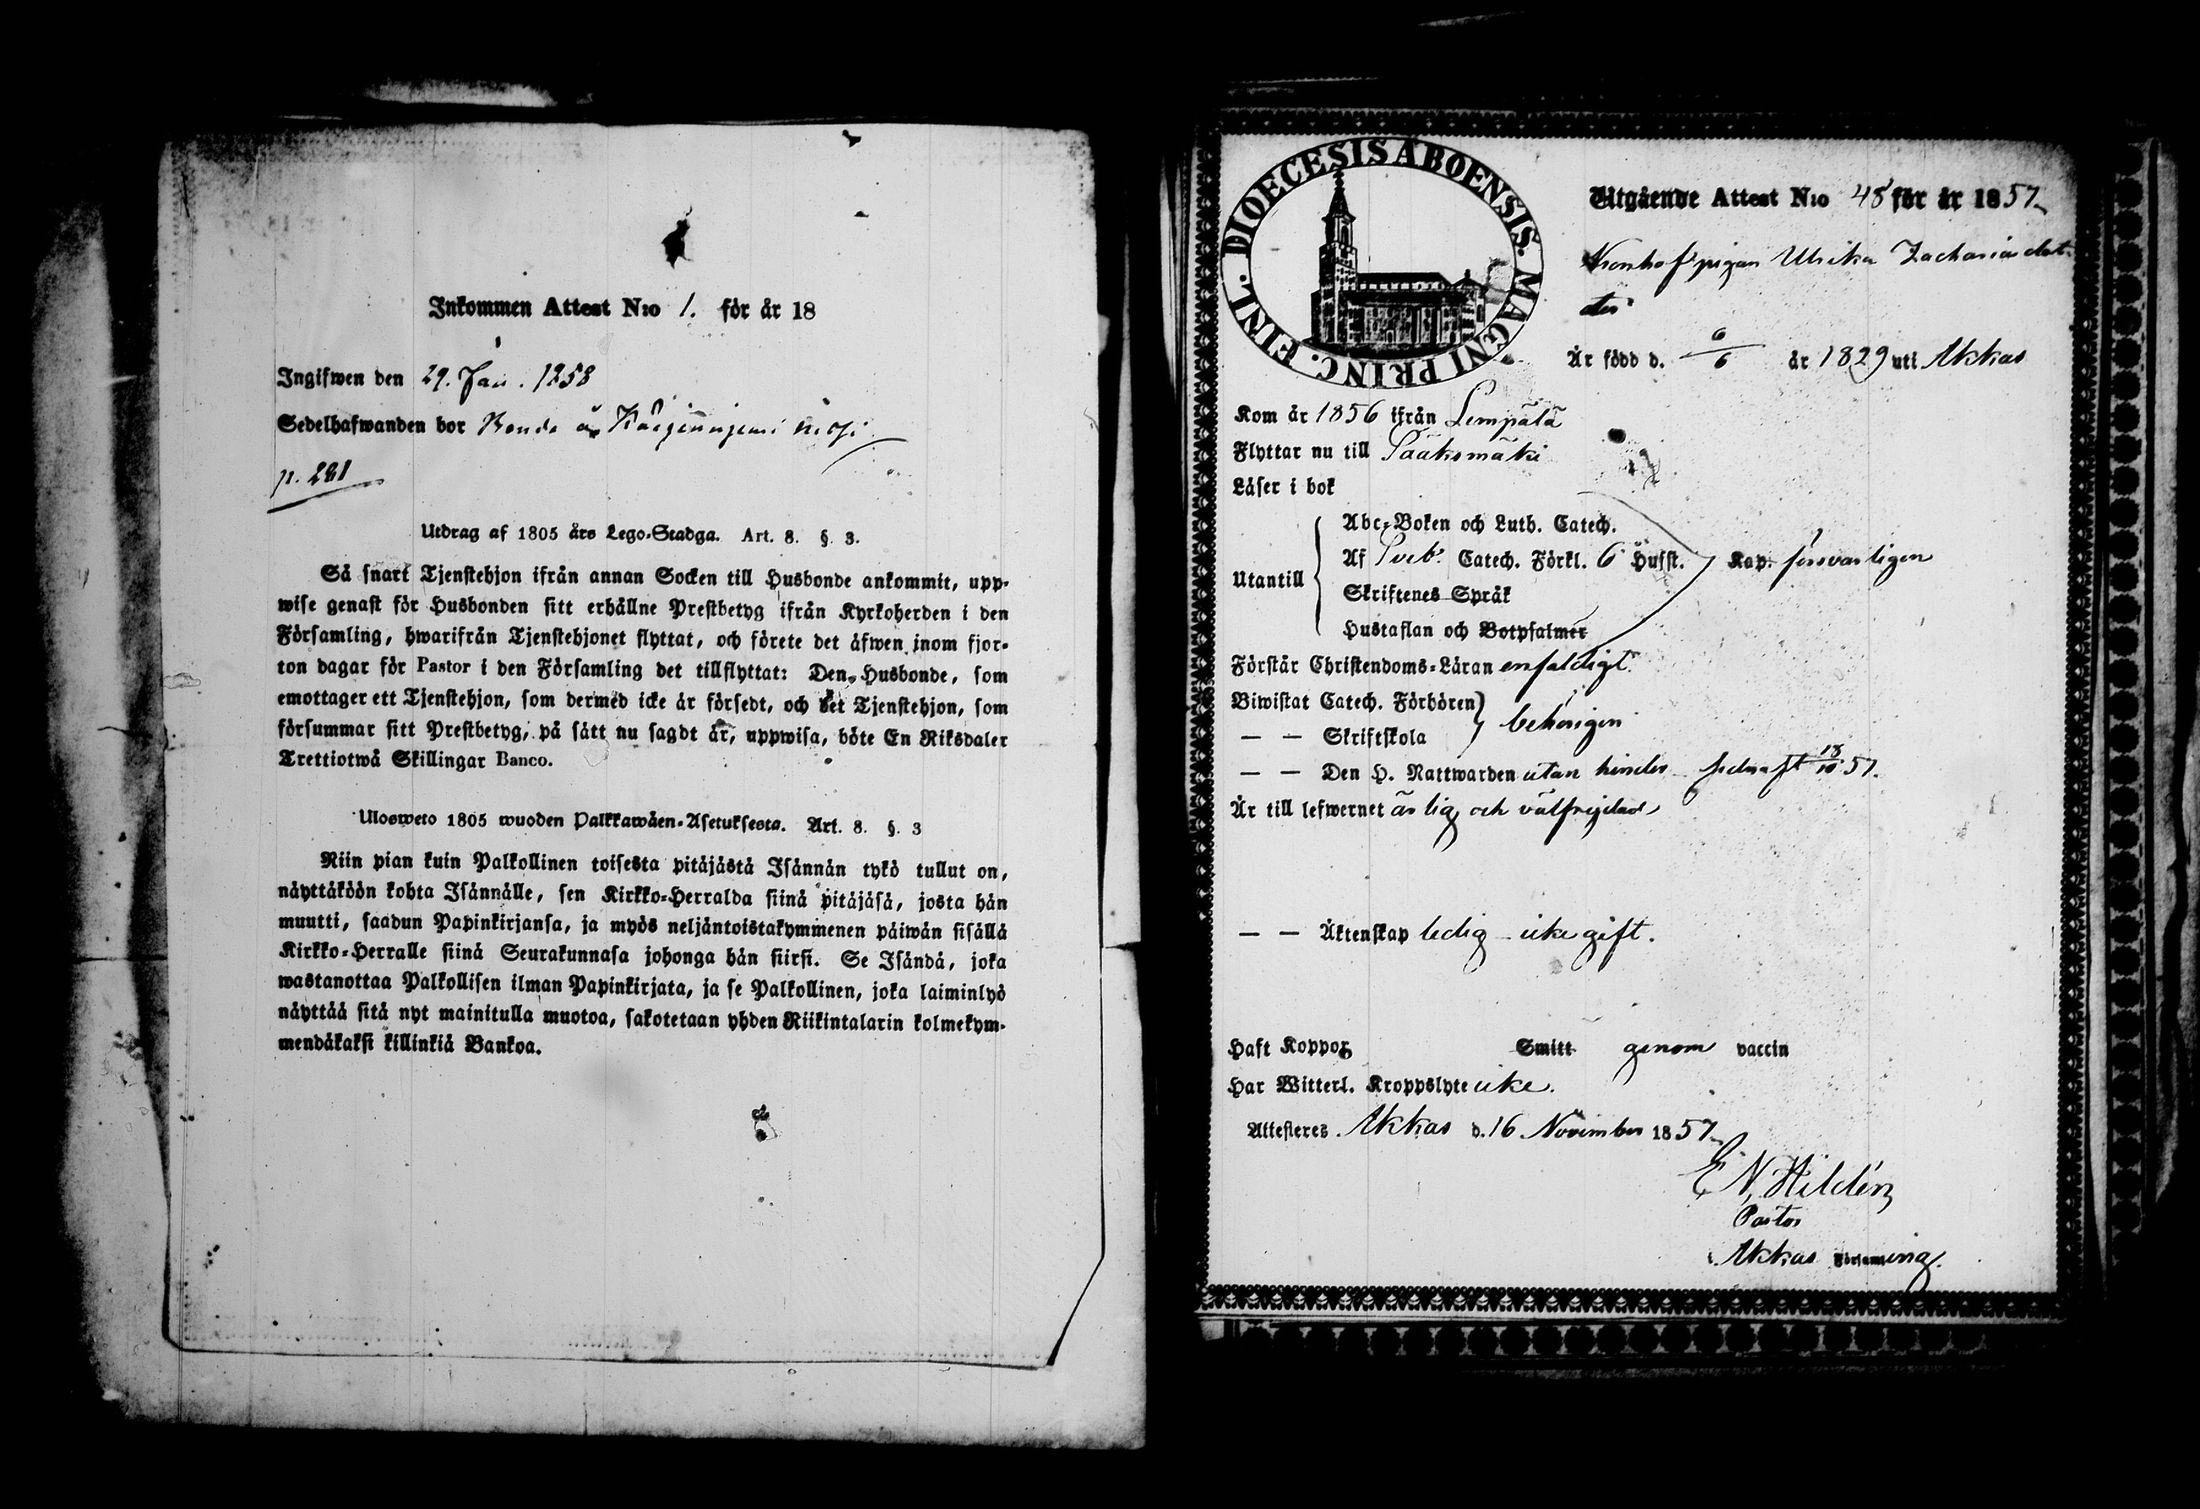 Inkommen Attest N:o 1. för år 18
Ingifwen den 29. Jan. 1858
Sedelhafwanden bor
p. 281
Utdrag af 1805 års Lego-Stadga. Art. 8. §. 3.
Så snart Tjenstehjon ifrån annan Socken till Husbonde ankommit, upp-
wise genast för Husbonden sitt erhållne Prestbetyg ifrån Kyrkoherden i den
Församling, hwarifrån Tjenstehjonet flyttat, och förete det äfwen inom fjor-
ton dagar för Pastor i den Församling det tillflyttat: Den Husbonde, som
emottager ett Tjenstehjon, som dermed icke är försedt, och det Tjenstehjon, som
försummar sitt Prestbetyg, på sätt nu sagdt är, uppwisa, böte En Riksdaler
Trettiotwå Skillingar Banco.
Ulosweto 1805 wuoden Palkkawäen-Asetuksesta. Art. 8. §. 3
Niin pian kuin Palkollinen toisesta pitäjästä Isännän tykö tullut on,
näyttäköön kohta Isännälle, sen Kirkko-Herralda siinä pitäjäsä, josta hän
muutti, saadun Papinkirjansa, ja myös neljäntoistakymmenen päiwän sisällä
Kirkko-Herralle siinä Seurakunnasa johonga hän siirsi. Se Isändä, joka
wastanottaa Palkollisen ilman Papinkirjata, ja se Palkollinen, joka laiminlyö
näyttää sitä nyt mainitulla muotoa, sakotetaan yhden Riikintalarin kolmekym-
mendäkaksi killinkiä Bankoa.
DIOECESIS ABOENSIS. MAGNI PRINC. FINL.
Utgående Attest N:o 48 för år 1857
pigan Ulrika Zachariasdot
ter
Är född d. 6/6 år 1829 uti Akkas
Kom år 1856 ifrån Lempälä
Flyttar nu till Sääksmäki
Läser i bok
Utantill
Abc-Boken och Luth. Catech.
Af Sveb. Catech. Förkl. 6 Hufst. Kap. försvarligen
Skriftenes Språk
Hustaflan och Botpsalmer
Förstår Christendoms-Läran enfaldigt
Biwistat Catech. Förhören
— — Skriftskola
behörigen
— — Den H. Nattwarden utan hinder sednast 18/10 57.
Är till lefwernet ärlig och välfrejdad
— — Äktenskap ledig icke gift.
Haft Koppor Smitt genom vaccin
Har Witterl. Kroppslyte icke.
Attesteres Akkas d. 16 November 1857
E N Hildén
Pastor
i Akkas Församling.